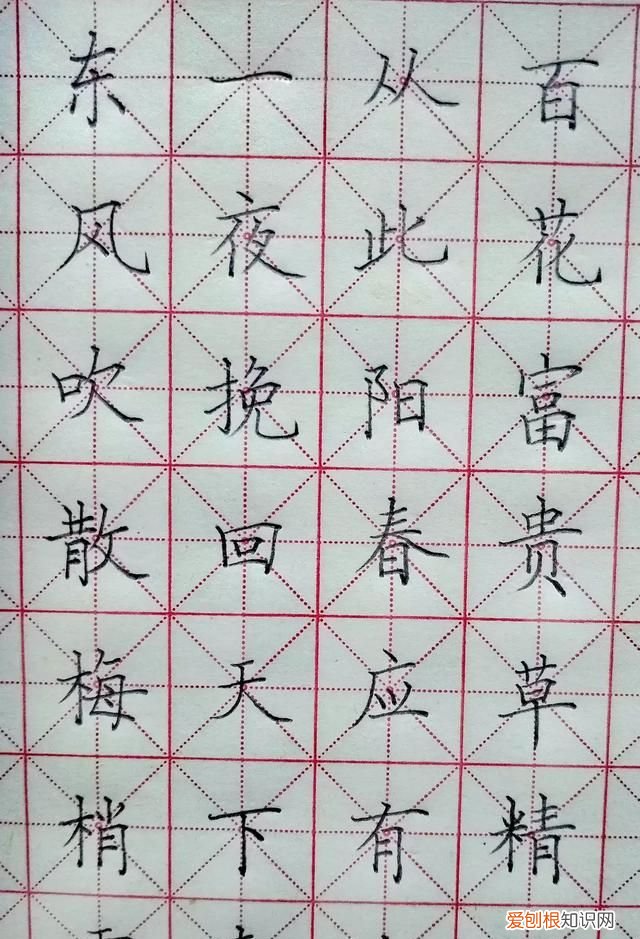 东风吹散梅梢
一夜挽回天下
从此阳春应有
百花富贵草精
爱刨根知识网